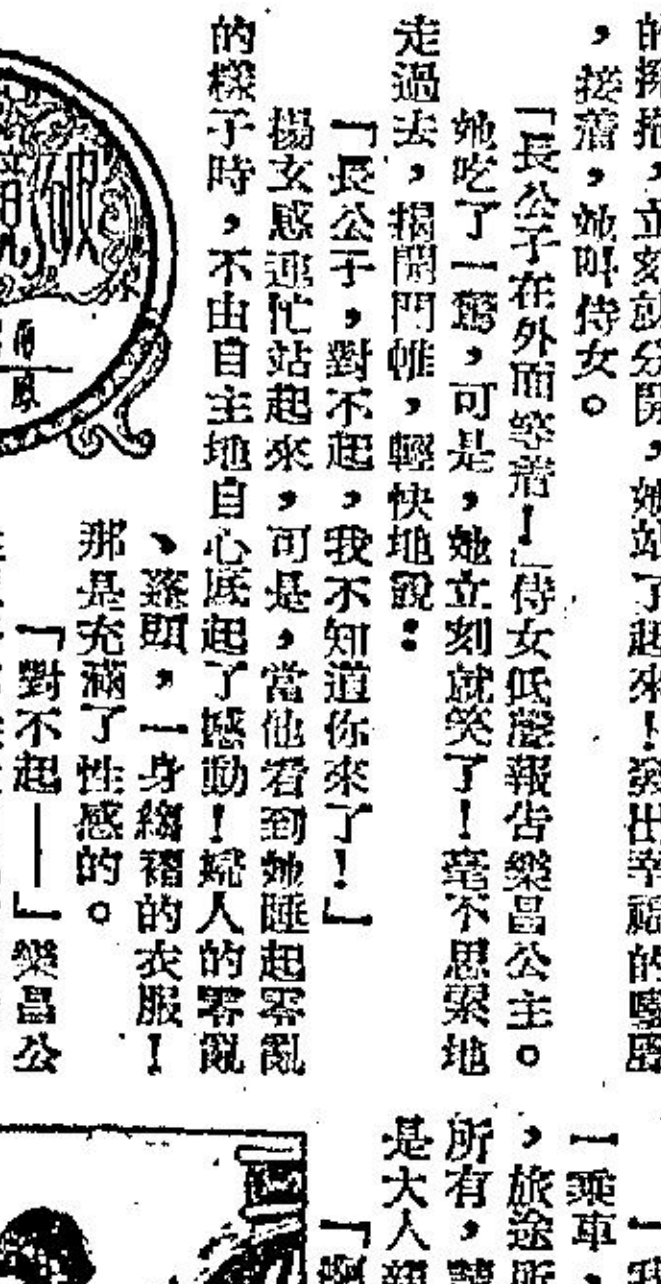 立刻就分開，她站了起來！發出幸福的
，接着，她叫侍女。
「長公子在外面等着！」侍女低聲報告樂昌公主。
她吃了一驚，可是，她立刻就笑了！毫不思索地
走過去，揭開門帷，輕快地說：
「長公子，對不起，我不知道你來了！」
楊玄感連忙站起來，可是，當他看到她睡起零亂
的樣子時，不由自主地自心底起了憾動！婦人的零亂
、蓬頭，一身縐褶的衣服！
那是充滿了性感的。
「對不起——」樂昌公
破
南
一乘車，
，旅途所
所有，
是大人